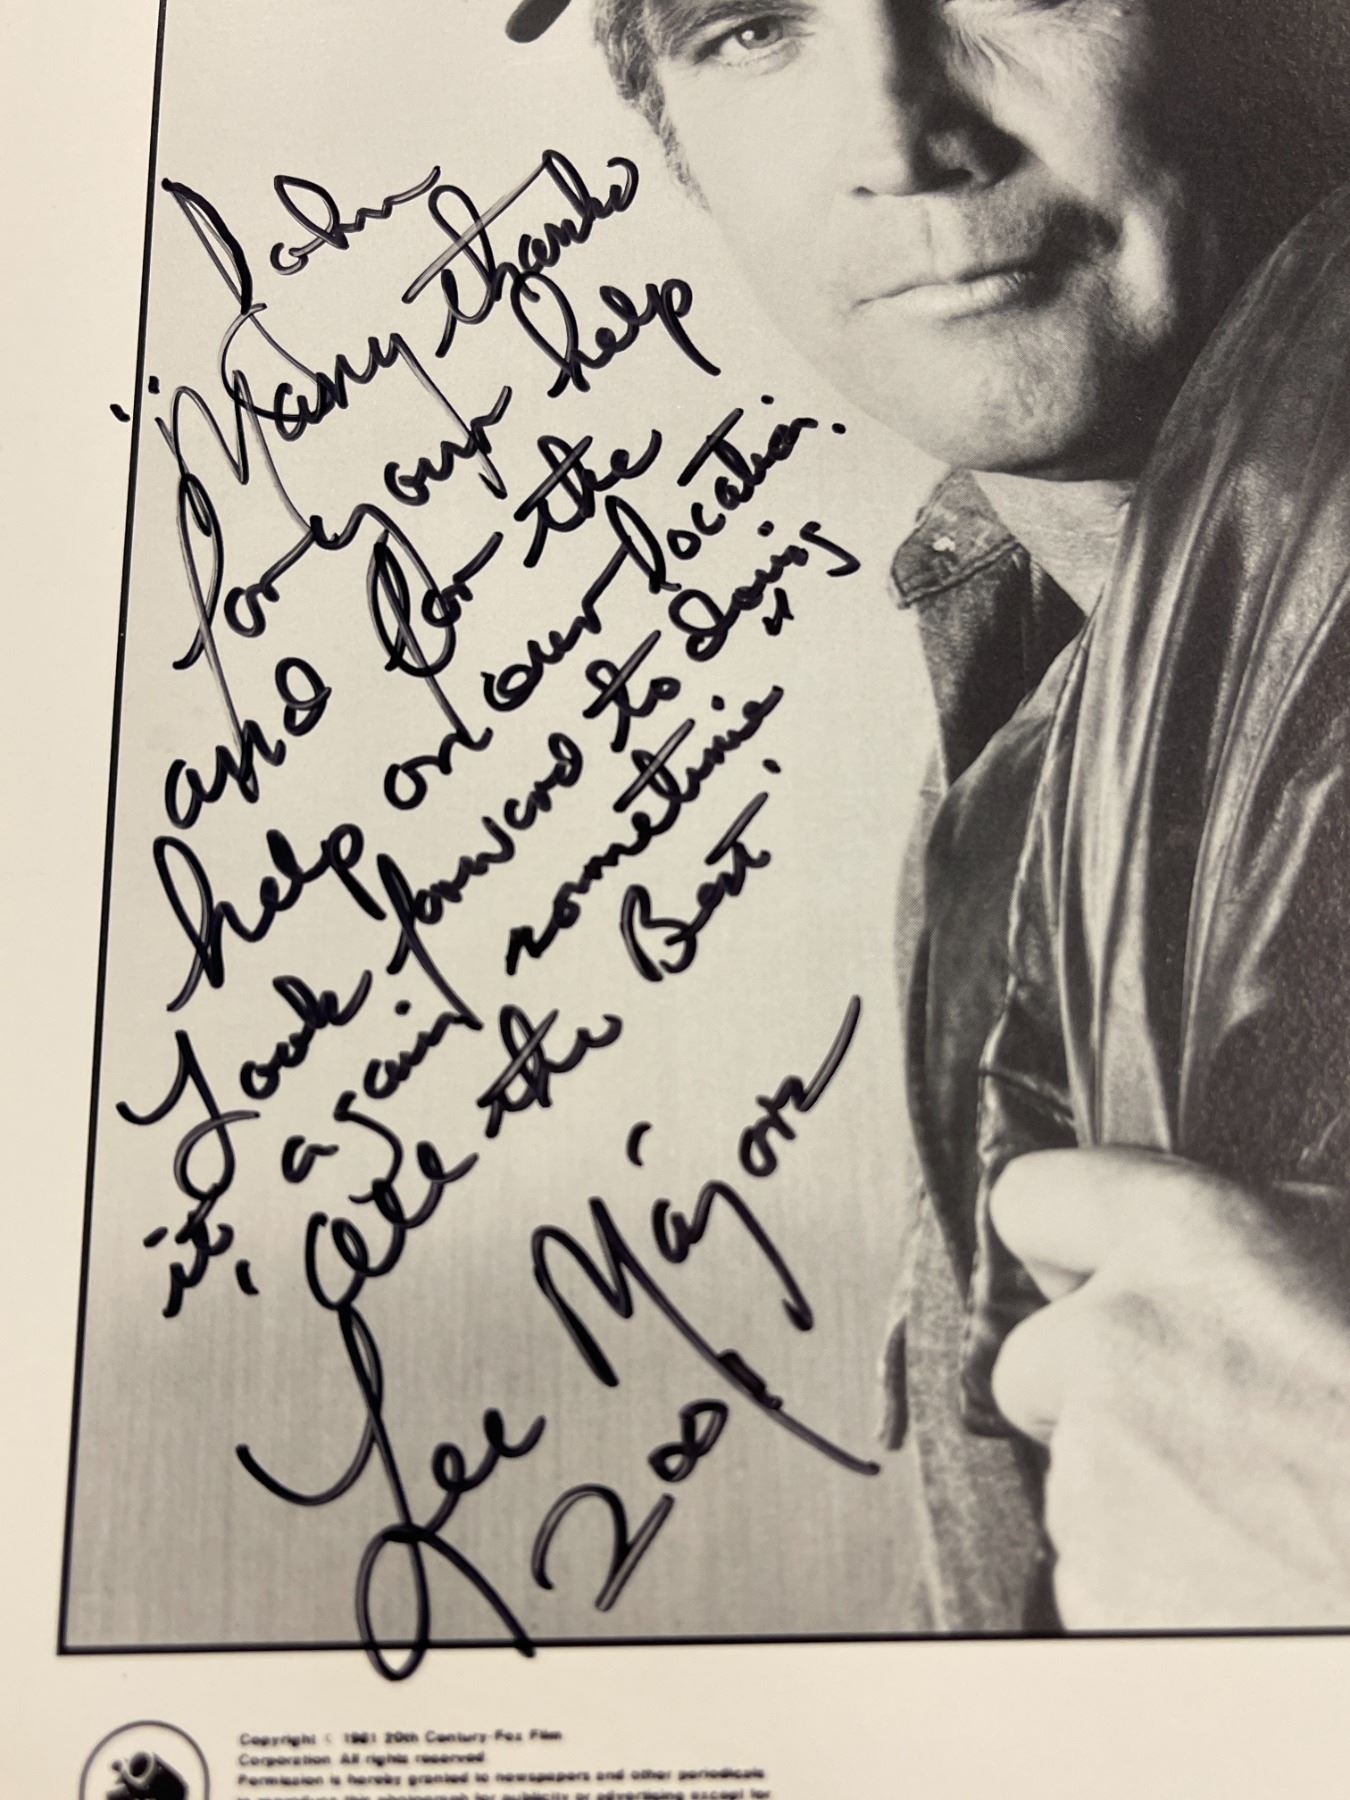 John
"Many thanks
for your help
and for the
help on our location.
Look forward to doing
it, again sometime"
All the Best
Lee Majors
Copyright © 1981 20th Century-Fox Film
Corporation. All rights reserved.
Permission is hereby granted to newspapers and other periodicals
to reproduce this photograph for publicity or advertising except for